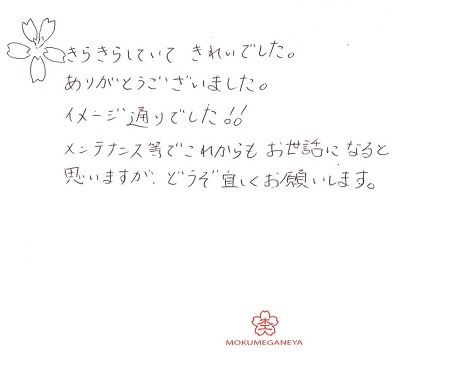 きらきらしていて きれいでした。
ありがとうございました。
イメージ通りでした!!
メンテナンス等でこれからも お世話になると
思いますが、どうぞ宜しくお願いします。
杢
MOKUMEGANEYA